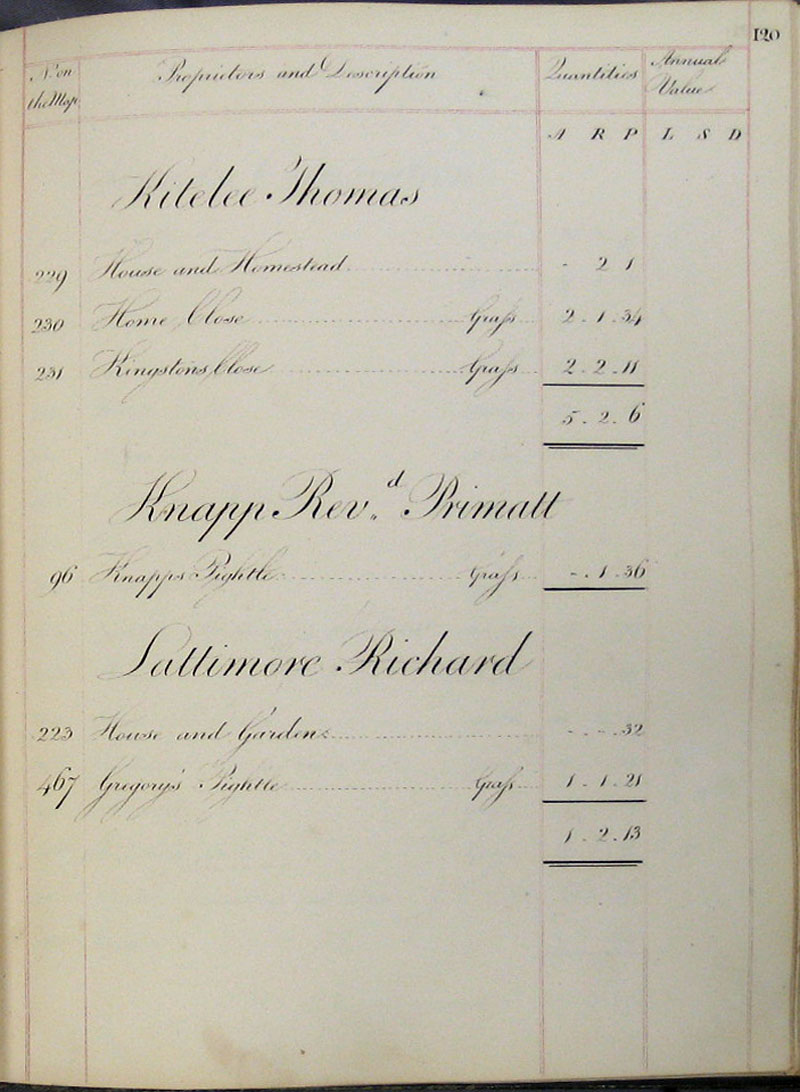 120
No. on the Map Proprietors and Description Quantities Annual Value
A R P L S D
Kitelee Thomas
229 House and Homestead - 2 1
230 Home Close Grass 2 . 1 . 34
231 Kingstons Close Grass 2 . 2 . 11
5 . 2 . 6
Knapp Rev.d Primatt
96 Knapps Pightle Grass - . 1 . 36
Lattimore Richard
223 House and Garden - . - . 32
467 Gregory's Pightle Grass 1 . 1 . 21
1 . 2 . 13